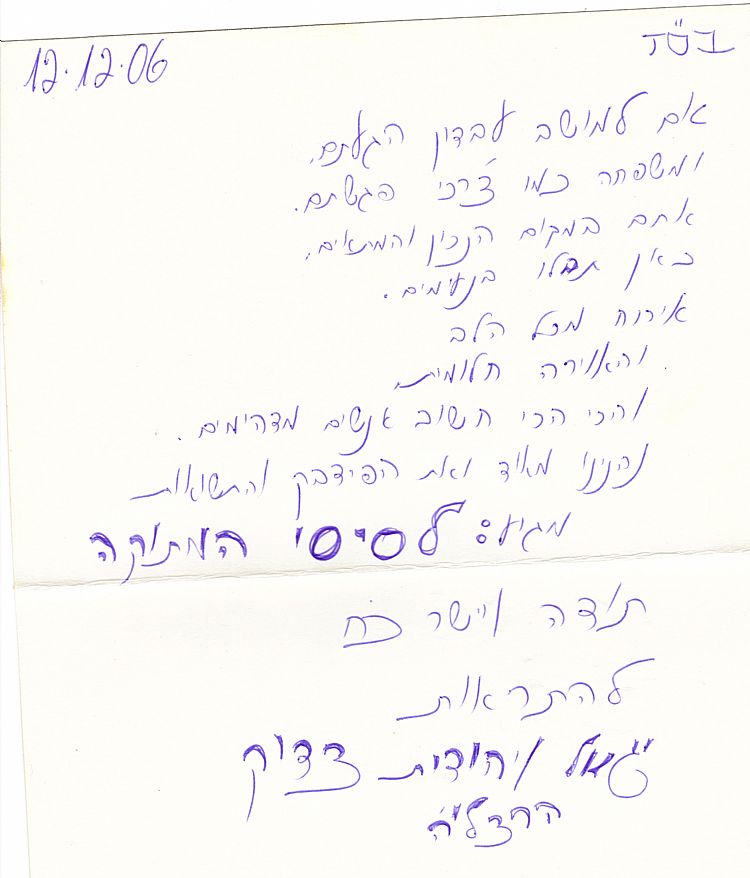 בס"ד
12.12.06
אם למושב עבדון הגעתם,
ומשפחה כמו צרכי פגשתם.
אתם במקום הנכון והמתאים,
כאן תבלו בנעימים.
אירוח מכל הלב
והאוירה חלומית,
והכי הכי חשוב אנשים מדהימים.
נהנינו מאוד ואת הפידבק והתשואות
מגיע: לסיסי המתוקה
תודה ויישר כח
להתראות
יגאל ויהודית צדוק
הרצל"ה